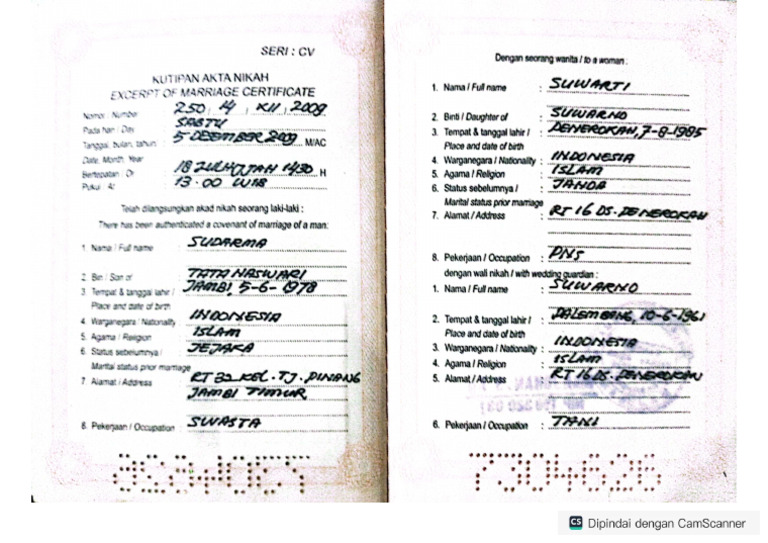 SERI : CV
KUTIPAN AKTA NIKAH
EXCERPT OF MARRIAGE CERTIFICATE
Nomor / Number 250, 14, XII, 2009
Pada hari / Day SABTU
Tanggal, bulan, tahun 5 DESEMBER 2009 M/AC
Date, Month, Year
Bertepatan / Or 18 ZULHIJJAH 1430 H
Pukul / At 13.00 WIB
Telah dilangsungkan akad nikah seorang laki-laki :
There has been authenticated a covenant of marriage of a man:
1. Nama / Full name : SUDARMA
2. Bin / Son of : TATA NASWARI
3. Tempat & tanggal lahir / : JAMBI, 5-6-1978
Place and date of birth
4. Warganegara / Nationality : INDONESIA
5. Agama / Religion : ISLAM
6. Status sebelumnya / : JEJAKA
Marital status prior marriage
7. Alamat / Address : RT 32 KEL. TJ. PINANG
JAMBI TIMUR
8. Pekerjaan / Occupation : SWASTA
Dengan seorang wanita / to a woman :
1. Nama / Full name : SUWARTI
2. Binti / Daughter of : SUWARNO
3. Tempat & tanggal lahir / : PENEROKAN, 7-8-1985
Place and date of birth
4. Warganegara / Nationality : INDONESIA
5. Agama / Religion : ISLAM
6. Status sebelumnya / : JANDA
Marital status prior marriage
7. Alamat / Address : RT 16 DS. PENEROKAN
8. Pekerjaan / Occupation : PNS
dengan wali nikah / with wedding guardian :
1. Nama / Full name : SUWARNO
2. Tempat & tanggal lahir / : PALEMBANG, 10-6-1961
Place and date of birth
3. Warganegara / Nationality : INDONESIA
4. Agama / Religion : ISLAM
5. Alamat / Address : RT 16 DS. PENEROKAN
6. Pekerjaan / Occupation : TANI
7304628
CS Dipindai dengan CamScanner